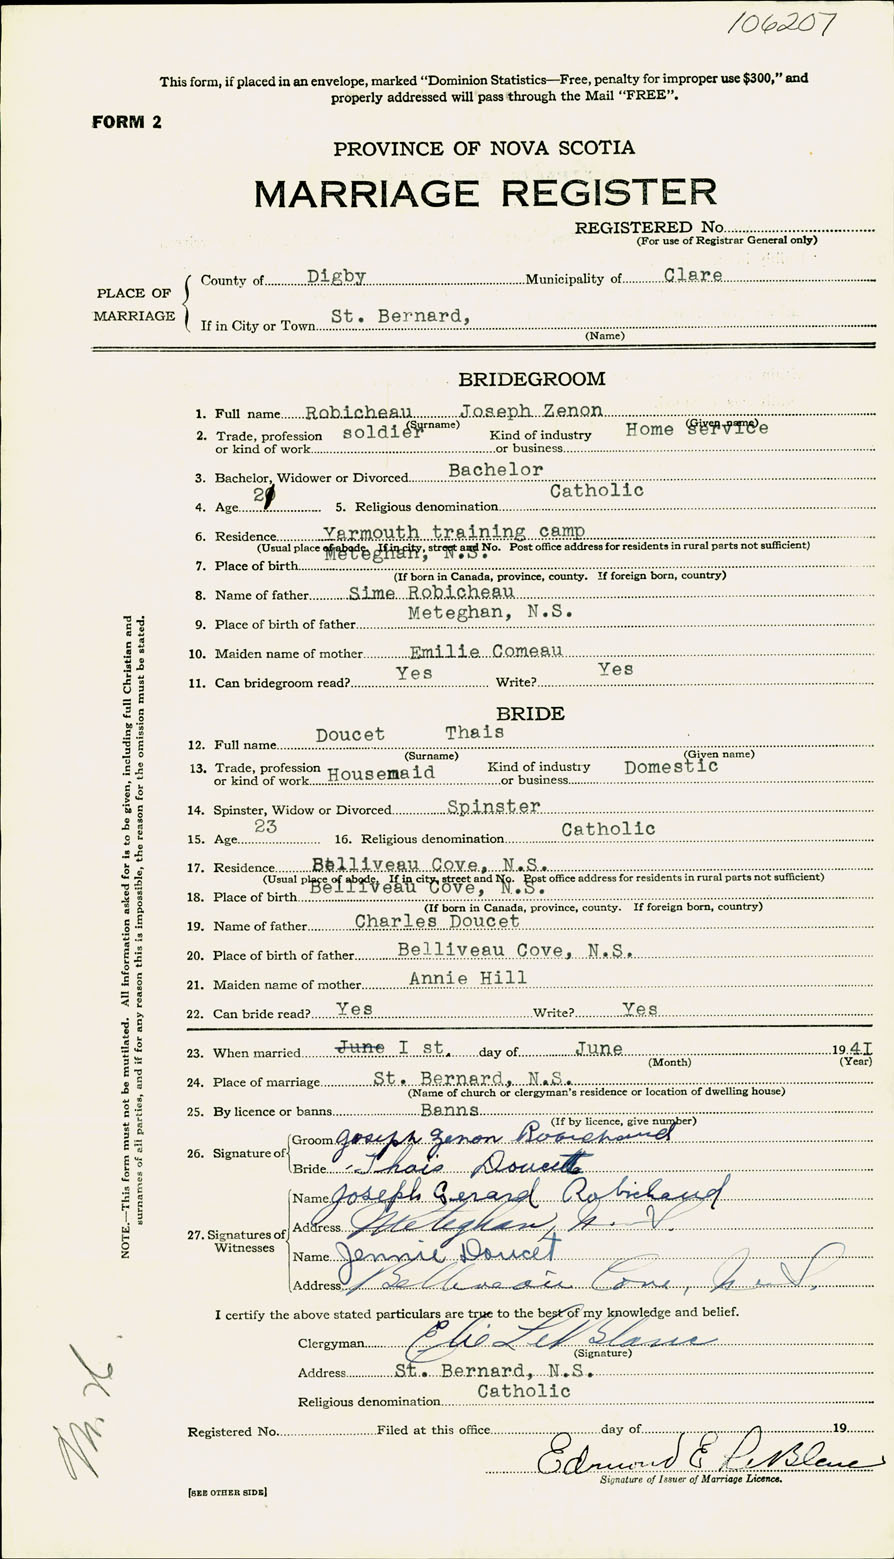 106207
This form, if placed in an envelope, marked "Dominion Statistics—Free, penalty for improper use $300," and
properly addressed will pass through the Mail "FREE".
FORM 2
PROVINCE OF NOVA SCOTIA
MARRIAGE REGISTER
REGISTERED No.
(For use of Registrar General only)
PLACE OF MARRIAGE
County of Digby Municipality of Clare
If in City or Town St. Bernard,
(Name)
BRIDEGROOM
1. Full name Robicheau Joseph Zenon
(Surname) (Given name)
2. Trade, profession or kind of work soldier Kind of industry or business Home service
3. Bachelor, Widower or Divorced Bachelor
4. Age 5. Religious denomination Catholic
6. Residence Yarmouth training camp
(Usual place of abode. If in city, street and No. Post office address for residents in rural parts not sufficient)
7. Place of birth Meteghan, N.S.
(If born in Canada, province, county. If foreign born, country)
8. Name of father Sime Robicheau
9. Place of birth of father Meteghan, N.S.
10. Maiden name of mother Emilie Comeau
11. Can bridegroom read? Yes Write? Yes
BRIDE
12. Full name Doucet Thais
(Surname) (Given name)
13. Trade, profession or kind of work Housemaid Kind of industry or business Domestic
14. Spinster, Widow or Divorced Spinster
15. Age 23 16. Religious denomination Catholic
17. Residence Belliveau Cove, N.S.
(Usual place of abode. If in city, street and No. Post office address for residents in rural parts not sufficient)
18. Place of birth Belliveau Cove, N.S.
(If born in Canada, province, county. If foreign born, country)
19. Name of father Charles Doucet
20. Place of birth of father Belliveau Cove, N.S.
21. Maiden name of mother Annie Hill
22. Can bride read? Yes Write? Yes
23. When married June I st. day of June 1941
(Month) (Year)
24. Place of marriage St. Bernard, N.S.
(Name of church or clergyman's residence or location of dwelling house)
25. By licence or banns Banns
(If by licence, give number)
26. Signature of
Groom Joseph Zenon Robichaud
Bride Thais Doucett
27. Signatures of Witnesses
Name Joseph Gerard Robichaud
Address Meteghan, N.S.
Name Jennie Doucet
Address Belliveau Cove, N.S.
I certify the above stated particulars are true to the best of my knowledge and belief.
Clergyman Elie LeBlanc
(Signature)
Address St. Bernard, N.S.
Religious denomination Catholic
Registered No. Filed at this office day of 19
Edmond E LeBlanc
Signature of Issuer of Marriage Licence.
[SEE OTHER SIDE]
NOTE.—This form must not be mutilated. All information asked for is to be given, including full Christian and
surnames of all parties, and if for any reason this is impossible, the reason for the omission must be stated.